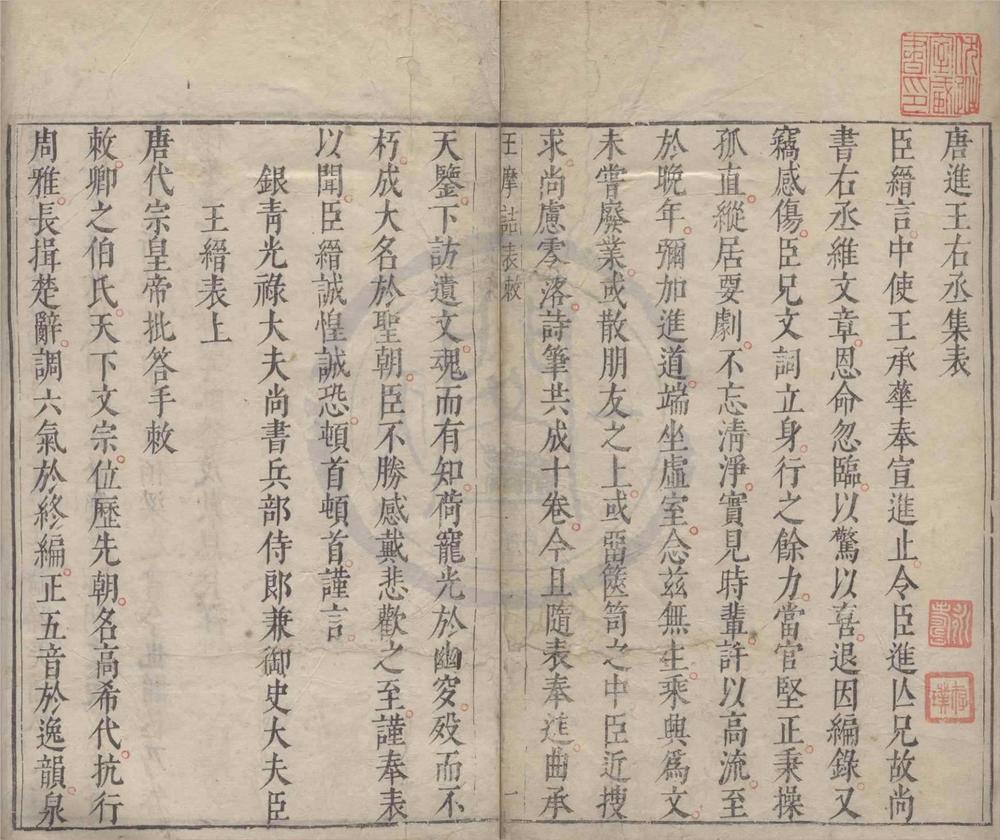 唐進王右丞集表
臣縉言中使王承華奉宣進止令臣進亾兄故尚
書右丞維文章恩命忽臨以驚以喜退因編錄又
竊感傷臣兄文詞立身行之餘力當官堅正秉操
孤直縱居要劇不忘清淨實見時輩許以高流至
於晚年彌加進道端坐虛室念兹無生乘興爲文
未嘗廢業或散朋友之上或畱篋笥之中臣近搜
求尚慮零落詩筆共成十卷今且隨表奉進曲承
王摩詰表敕
一
天鑒下訪遺文魂而有知荷寵光於幽穸歿而不
朽成大名於聖朝臣不勝感戴悲歡之至謹奉表
以聞臣縉誠惶誠恐頓首頓首謹言
銀青光祿大夫尚書兵部侍郎兼御史大夫臣
王縉表上
唐代宗皇帝批答手敕
敕卿之伯氏天下文宗位歷先朝名高希代抗行
周雅長揖楚辭調六氣於終編正五音於逸韻泉